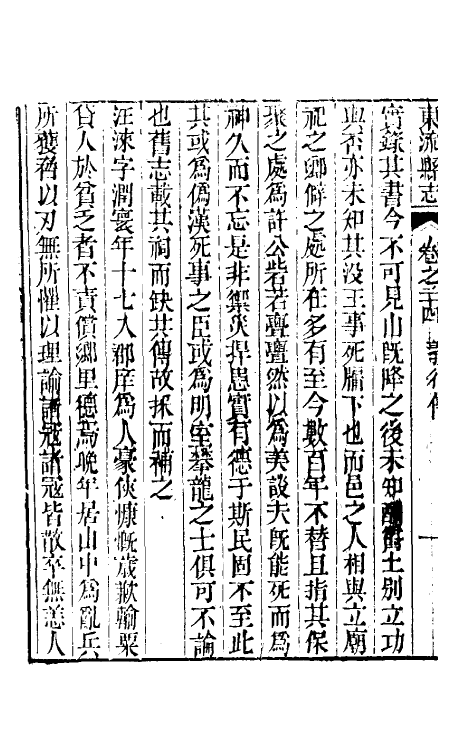 東流縣志 卷之二十四 義行傳 一
實錄其書今不可見山既降之後未知酬爵土別立功
與否亦未知其没王事死牖下也而邑之人相與立廟
祀之鄉僻之處所在多有至今數百年不替且指其保
聚之處為許公砦若舋舋然以為美談夫既能死而為
神久而不忘是非禦災捍患實有德于斯民固不至此
其或為偽漢死事之臣或為明室攀龍之士俱可不論
也舊志載其祠而缺其傳故採而補之
汪涑字澗寰年十七入郡庠為人豪俠慷慨歲歉輸粟
貸人於貧乏者不責償鄉里德焉晚年居山中為亂兵
所獲脅以刃無所懼以理諭諸寇諸寇皆散卒無恙人